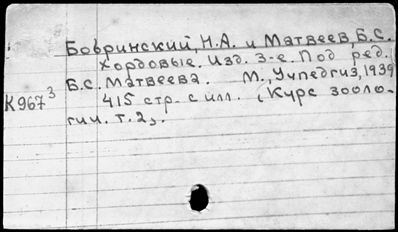 Бобринский, Н.А. и Матвеев, Б.С.
Хордовые. Изд. 3-е. Под ред.
Б.С. Матвеева. М., Учпедгиз, 1939
К967³ 415 стр. с илл. (Курс зооло-
гии. т. 2).